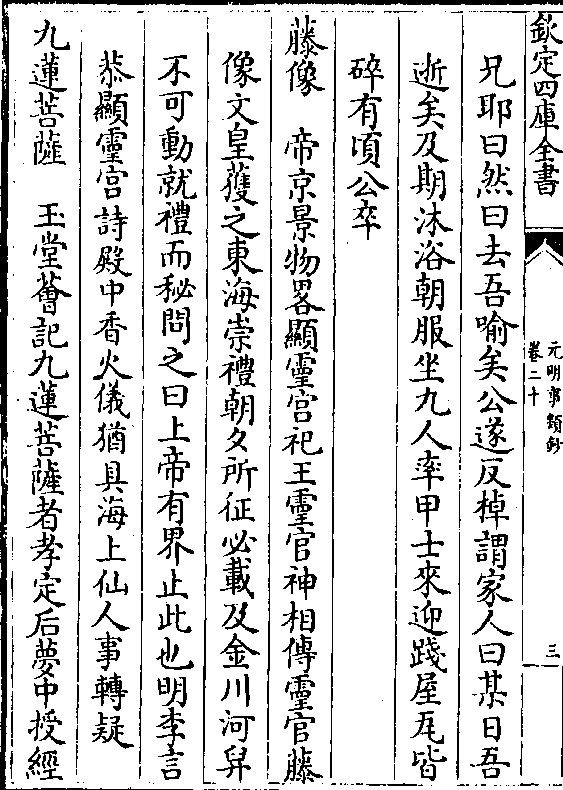 欽定四庫全書
元明事類鈔
卷二十
三
兄耶曰然曰去吾喻矣公遂反棹謂家人曰某日吾
逝矣及期沐浴朝服坐九人率甲士來迎踐屋瓦皆
碎有頃公卒
藤像　帝京景物畧顯靈宫祀王靈官神相傳靈官藤
像文皇獲之東海崇禮朝夕所征必載及金川河舁
不可動就禮而秘問之曰上帝有界止此也明李言
恭顯靈宫詩殿中香火儀猶具海上仙人事轉疑
九蓮菩薩　玉堂薈記九蓮菩薩者孝定后夢中授經